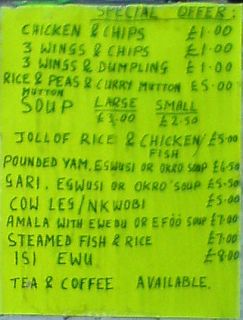 SPECIAL OFFER:
CHICKEN & CHIPS £1.00
3 WINGS & CHIPS £1.00
3 WINGS & DUMPLING £1.00
RICE & PEAS & CURRY MUTTON £5.00
MUTTON
SOUP LARGE SMALL
£3.00 £2.50
JOLLOF RICE & CHICKEN/ £5.00
FISH
POUNDED YAM, EGWUSI OR OKRO SOUP £6.50
GARI, EGWUSI OR OKRO SOUP £5.50
COW LEG/NKWOBI £5.00
AMALA WITH EWEDU OR EFÖÖ SOUP £7.00
STEAMED FISH & RICE £7.00
ISI EWU £8.00
TEA & COFFEE AVAILABLE.